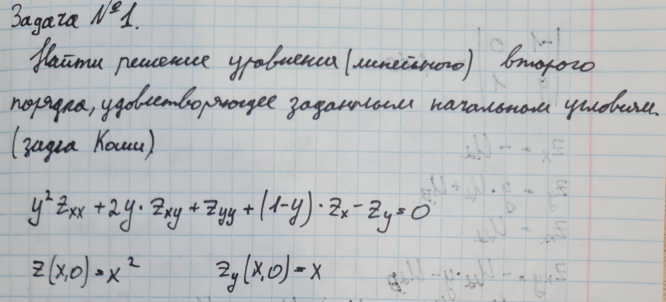 Задача №1.
Найти решение уравнения (линейного) второго
порядка, удовлетворяющее заданным начальном условиям.
(задаа Коши)
y² z_xx + 2y · z_xy + z_yy + (1-y) · z_x - z_y = 0
z(x,0) = x²    z_y(x,0) = x